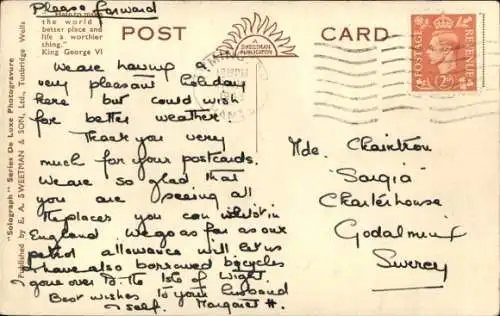 Please forward
"Help to make
the world
better place and
life a worthier
thing."
King George VI
POST
CARD
A SWEETMAN
PUBLICATION
POSTAGE
REVENUE
2D
"Solograph" Series De Luxe Photogravure
Published by E. A. SWEETMAN & SON, Ltd., Tunbridge Wells
We are having a
very pleasant holiday
here but could wish
for better weather.
Thank you very
much for your postcards.
We are so glad that
you are seeing all
the places you can whilst in
England we go as far as our
petrol allowance will let us
I have also borrowed bicycles
& gone over to the Isle of Wight
Best wishes to your husband
& self. Margaret H.
Mde. Chairtron
"Saigia"
Charterhouse
Godalming
Surrey